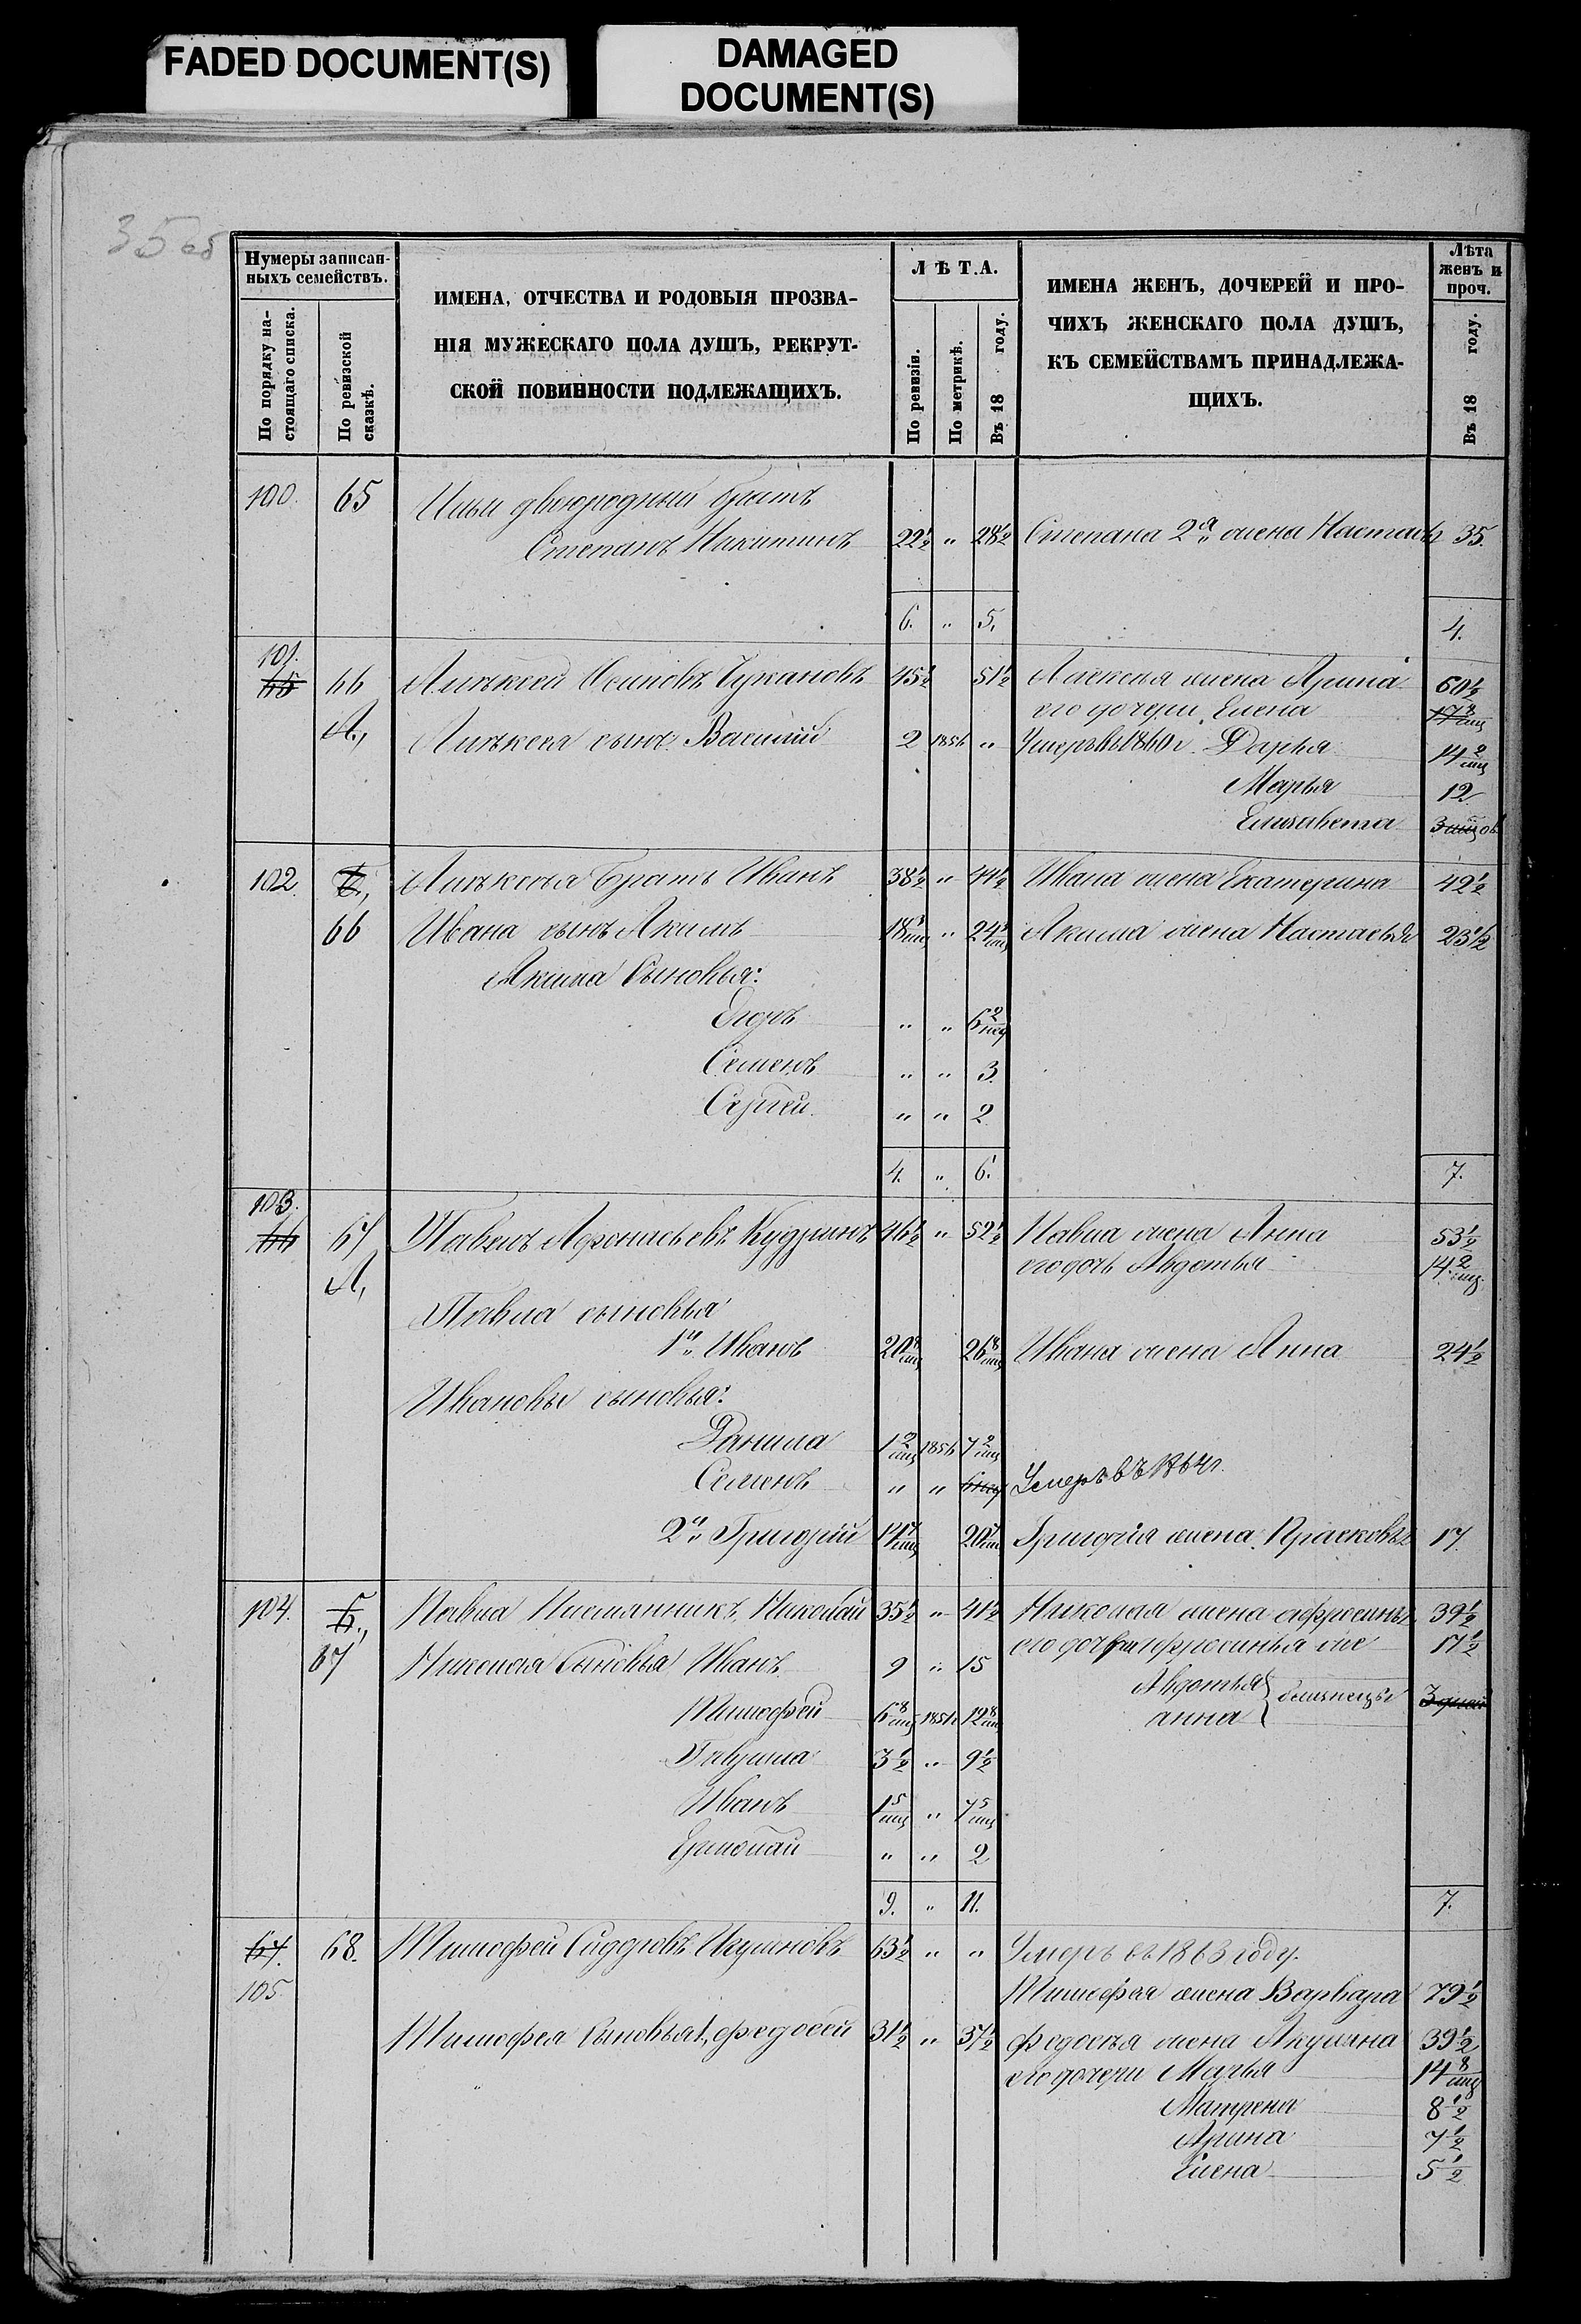 FADED DOCUMENT(S)
DAMAGED
DOCUMENT(S)
35 об
Нумеры записан-
ныхъ семействъ.
По порядку на-
стоящаго списка.
По ревизской
сказкѣ.
ИМЕНА, ОТЧЕСТВА И РОДОВЫЯ ПРОЗВА-
НІЯ МУЖЕСКАГО ПОЛА ДУШЪ, РЕКРУТ-
СКОЙ ПОВИННОСТИ ПОДЛЕЖАЩИХЪ.
ЛѢТА.
По ревизіи.
По метрикѣ.
Въ 18 году.
ИМЕНА ЖЕНЪ, ДОЧЕРЕЙ И ПРО-
ЧИХЪ ЖЕНСКАГО ПОЛА ДУШЪ,
КЪ СЕМЕЙСТВАМЪ ПРИНАДЛЕЖА-
ЩИХЪ.
Лѣта
женъ и
проч.
Въ 18 году.
100. 65 Ильи двоюродный братъ
Степанъ Никитинъ 22½ " 28½ Степана 2я жена Настасья 35.
6. " 5. 4.
101.
65 66 Алѣксей Осиповъ 45½ 51½ Алексея жена Арина 60½
его дочери Елена 17 8/мц
А., Алѣксея сынъ Василий 2 1856 " Умеръ въ 1860 г. Дарья 14 2/мц
Марья 12
Елизавета 3
102 Б., Алѣксея братъ Иванъ 38½ " 44½ Ивана жена Екатерина 42½
66 Ивана сынъ Акимъ 18 3/мц " 24 3/мц Акима жена Настасья 23½
Акима сыновья:
Егоръ " " 6 2/нед
Семенъ " " 3.
Сергей " " 2.
4. " 6. 7.
103.
66 67 Павелъ Афонасьевъ Кудринъ 46½ " 52½ Павла жена Анна 53½
А, его дочь Авдотья 14 2/мц
Павла сыновья
1й Иванъ 20 8/мц 26 8/мц Ивана жена Анна 24½
Ивановы сыновья:
Данила 1 2/мц 1856 7 2/мц
Семенъ " " 6 нед Умеръ въ 1864 г.
2й Григорій 14 7/мц 20 7/мц Григорія жена Прасковья 17.
104. Б., Павла племянникъ Николай 35½ " 41½ Николая жена афросинья 39½
его дочери 17½
67 Николая сыновья Иванъ 9 " 15
Авдотья
анна } близнецы 3 дней
Тимофей 6 8/мц 1851 12 8/мц
Гаврила 3½ " 9½
Иванъ 1 5/мц " 7 5/мц
Ермолай " " 2
9. " 11. 7.
67. 68. Тимофей Сидоровъ 63½ " " Умеръ въ 1863 году.
105. Тимофея жена Варвара 79½
Тимофея сыновья 1, федосей 31½ " 37½ федосея жена Акулина 39½
его дочери Марья 14 8/мц
Матрена 8½
Арина 7½
Елена 5½